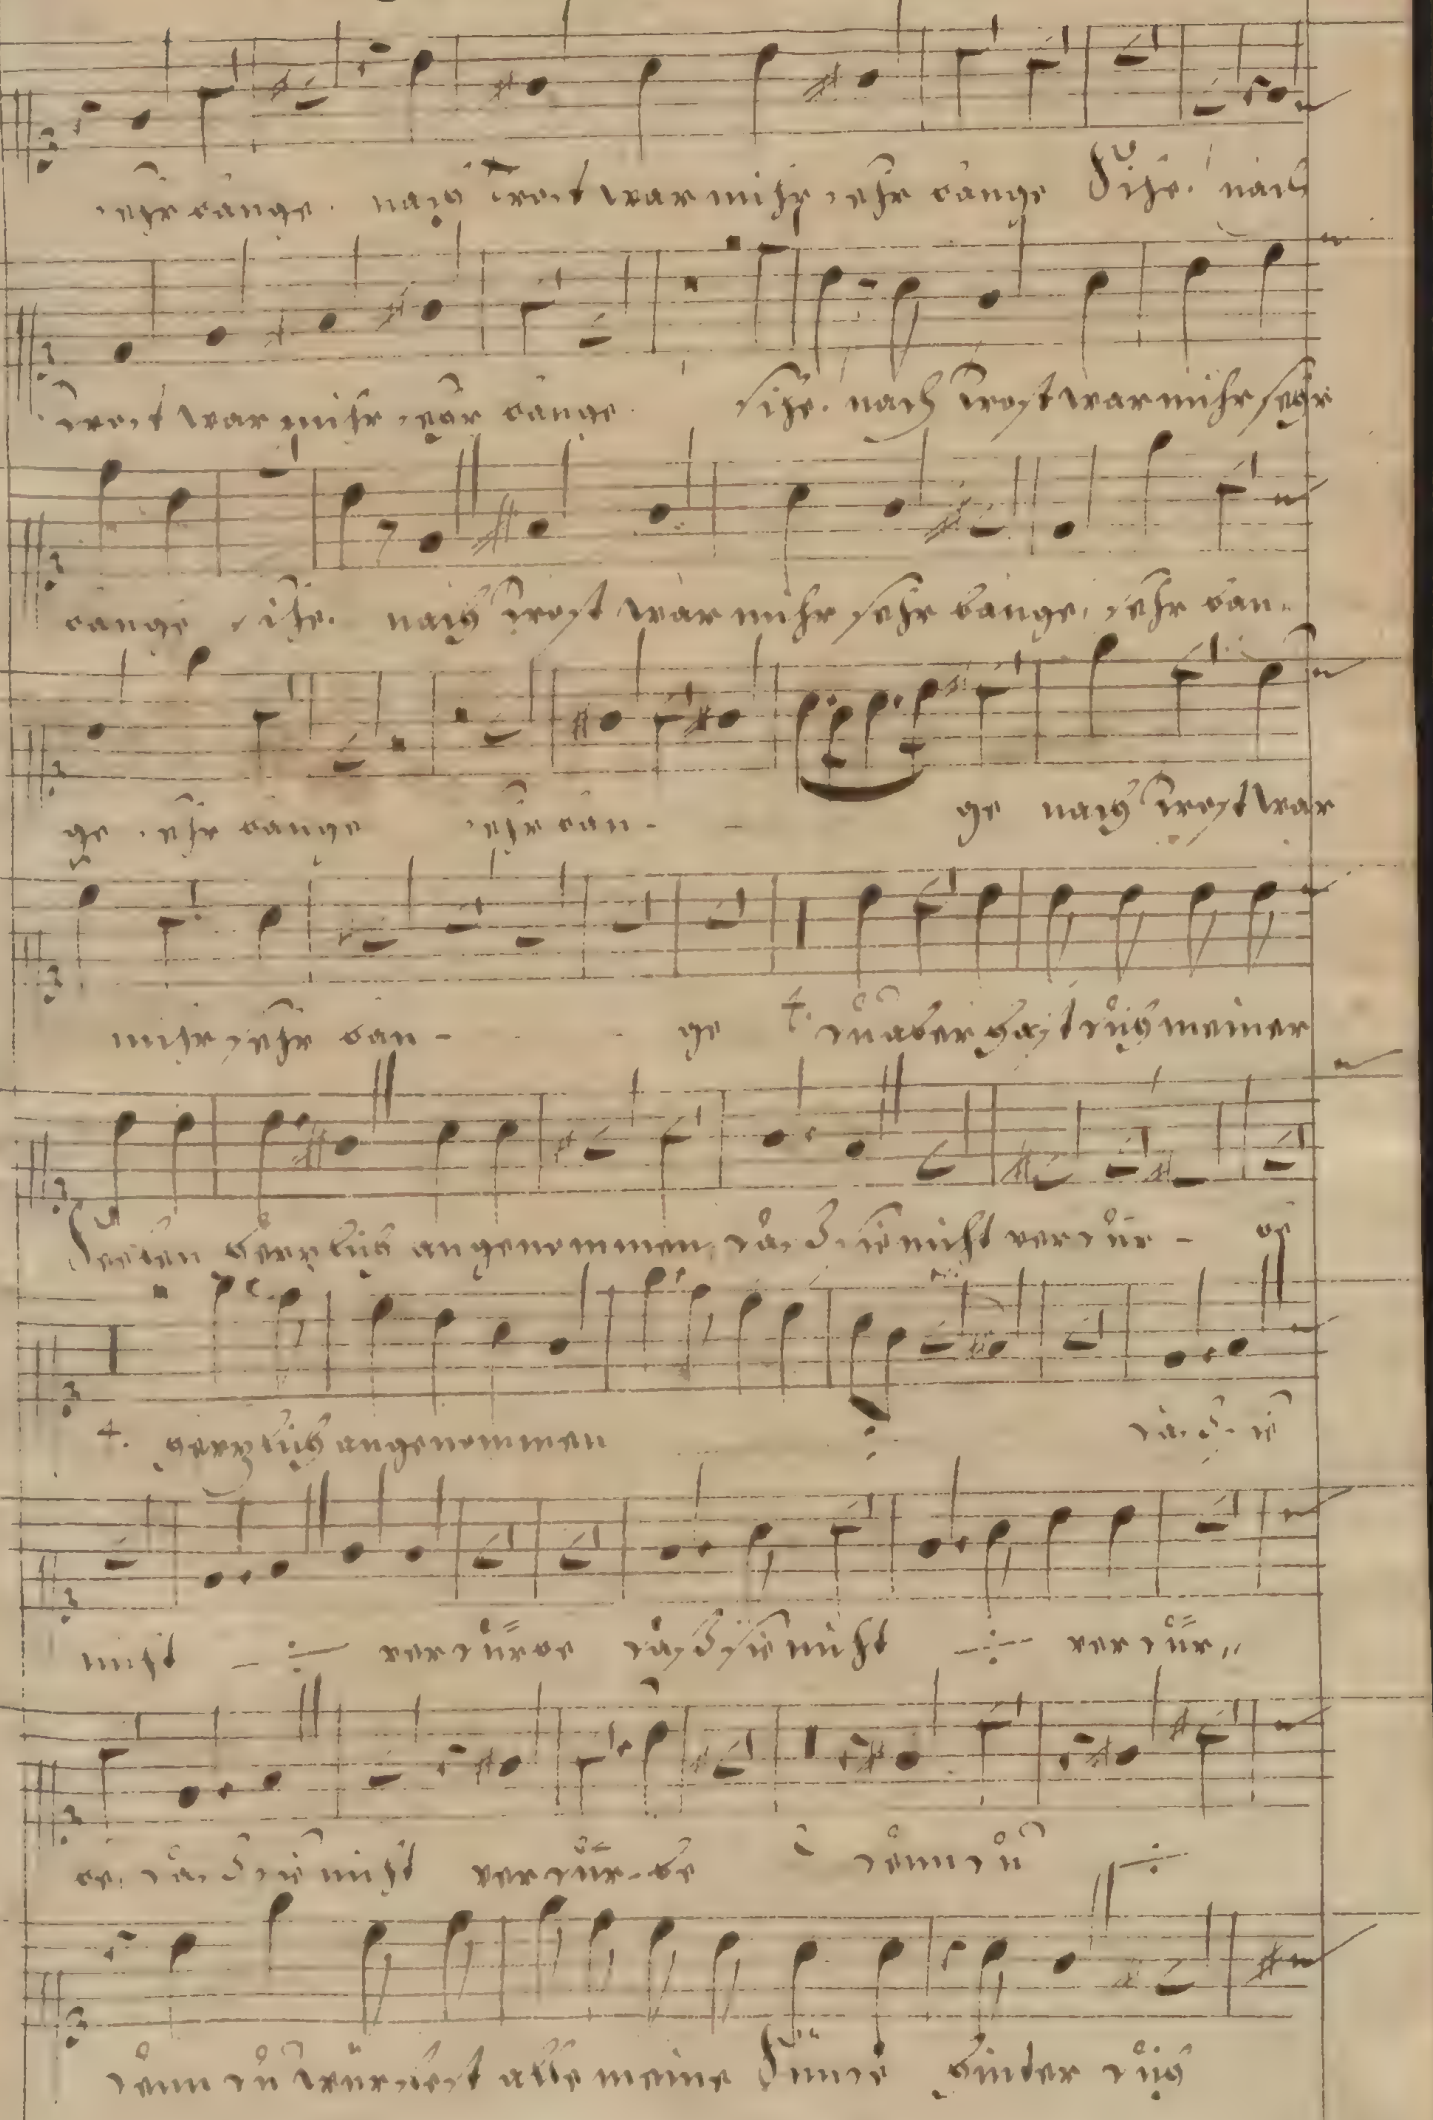 sehr bange. nach Trost war mihr sehr bange Sihe. nach
Trost war mihr sehr bange. sihe. nach Trost war mihr sehr
bange sihe. nach Trost war mihr sehr bange, sehr ban-
ge sehr bange sehr ban- - ge nach Trost war
mihr sehr ban - - - ge 4. du aber hast dich meiner
Seelen herzlich angenommen, daß sie nicht verdür - be
4. herzlich angenommen daß sie
nicht - ÷ verdürbe daß sie nicht - ÷ - verdür-
be, daß sie nicht verdür-be denn du ÷
denn du würfest alle meine Sünde hinder dich